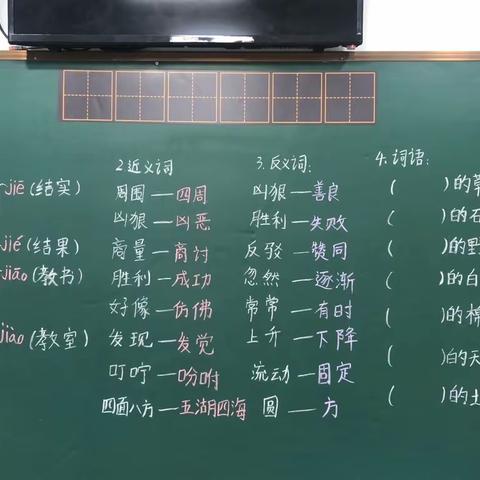 jiē(结实)
jié(结果)
jiāo(教书)
jiào(教室)
2.近义词
周围—四周
凶狠—凶恶
商量—商讨
胜利—成功
好像—仿佛
发现—发觉
叮咛—吩咐
四面八方—五湖四海
3.反义词:
凶狠—善良
胜利—失败
反驳—赞同
忽然—逐渐
常常—有时
上升—下降
流动—固定
圆—方
4.词语:
( )的
( )的石
( )的野
( )的白
( )的棉
( )的天
( )的土